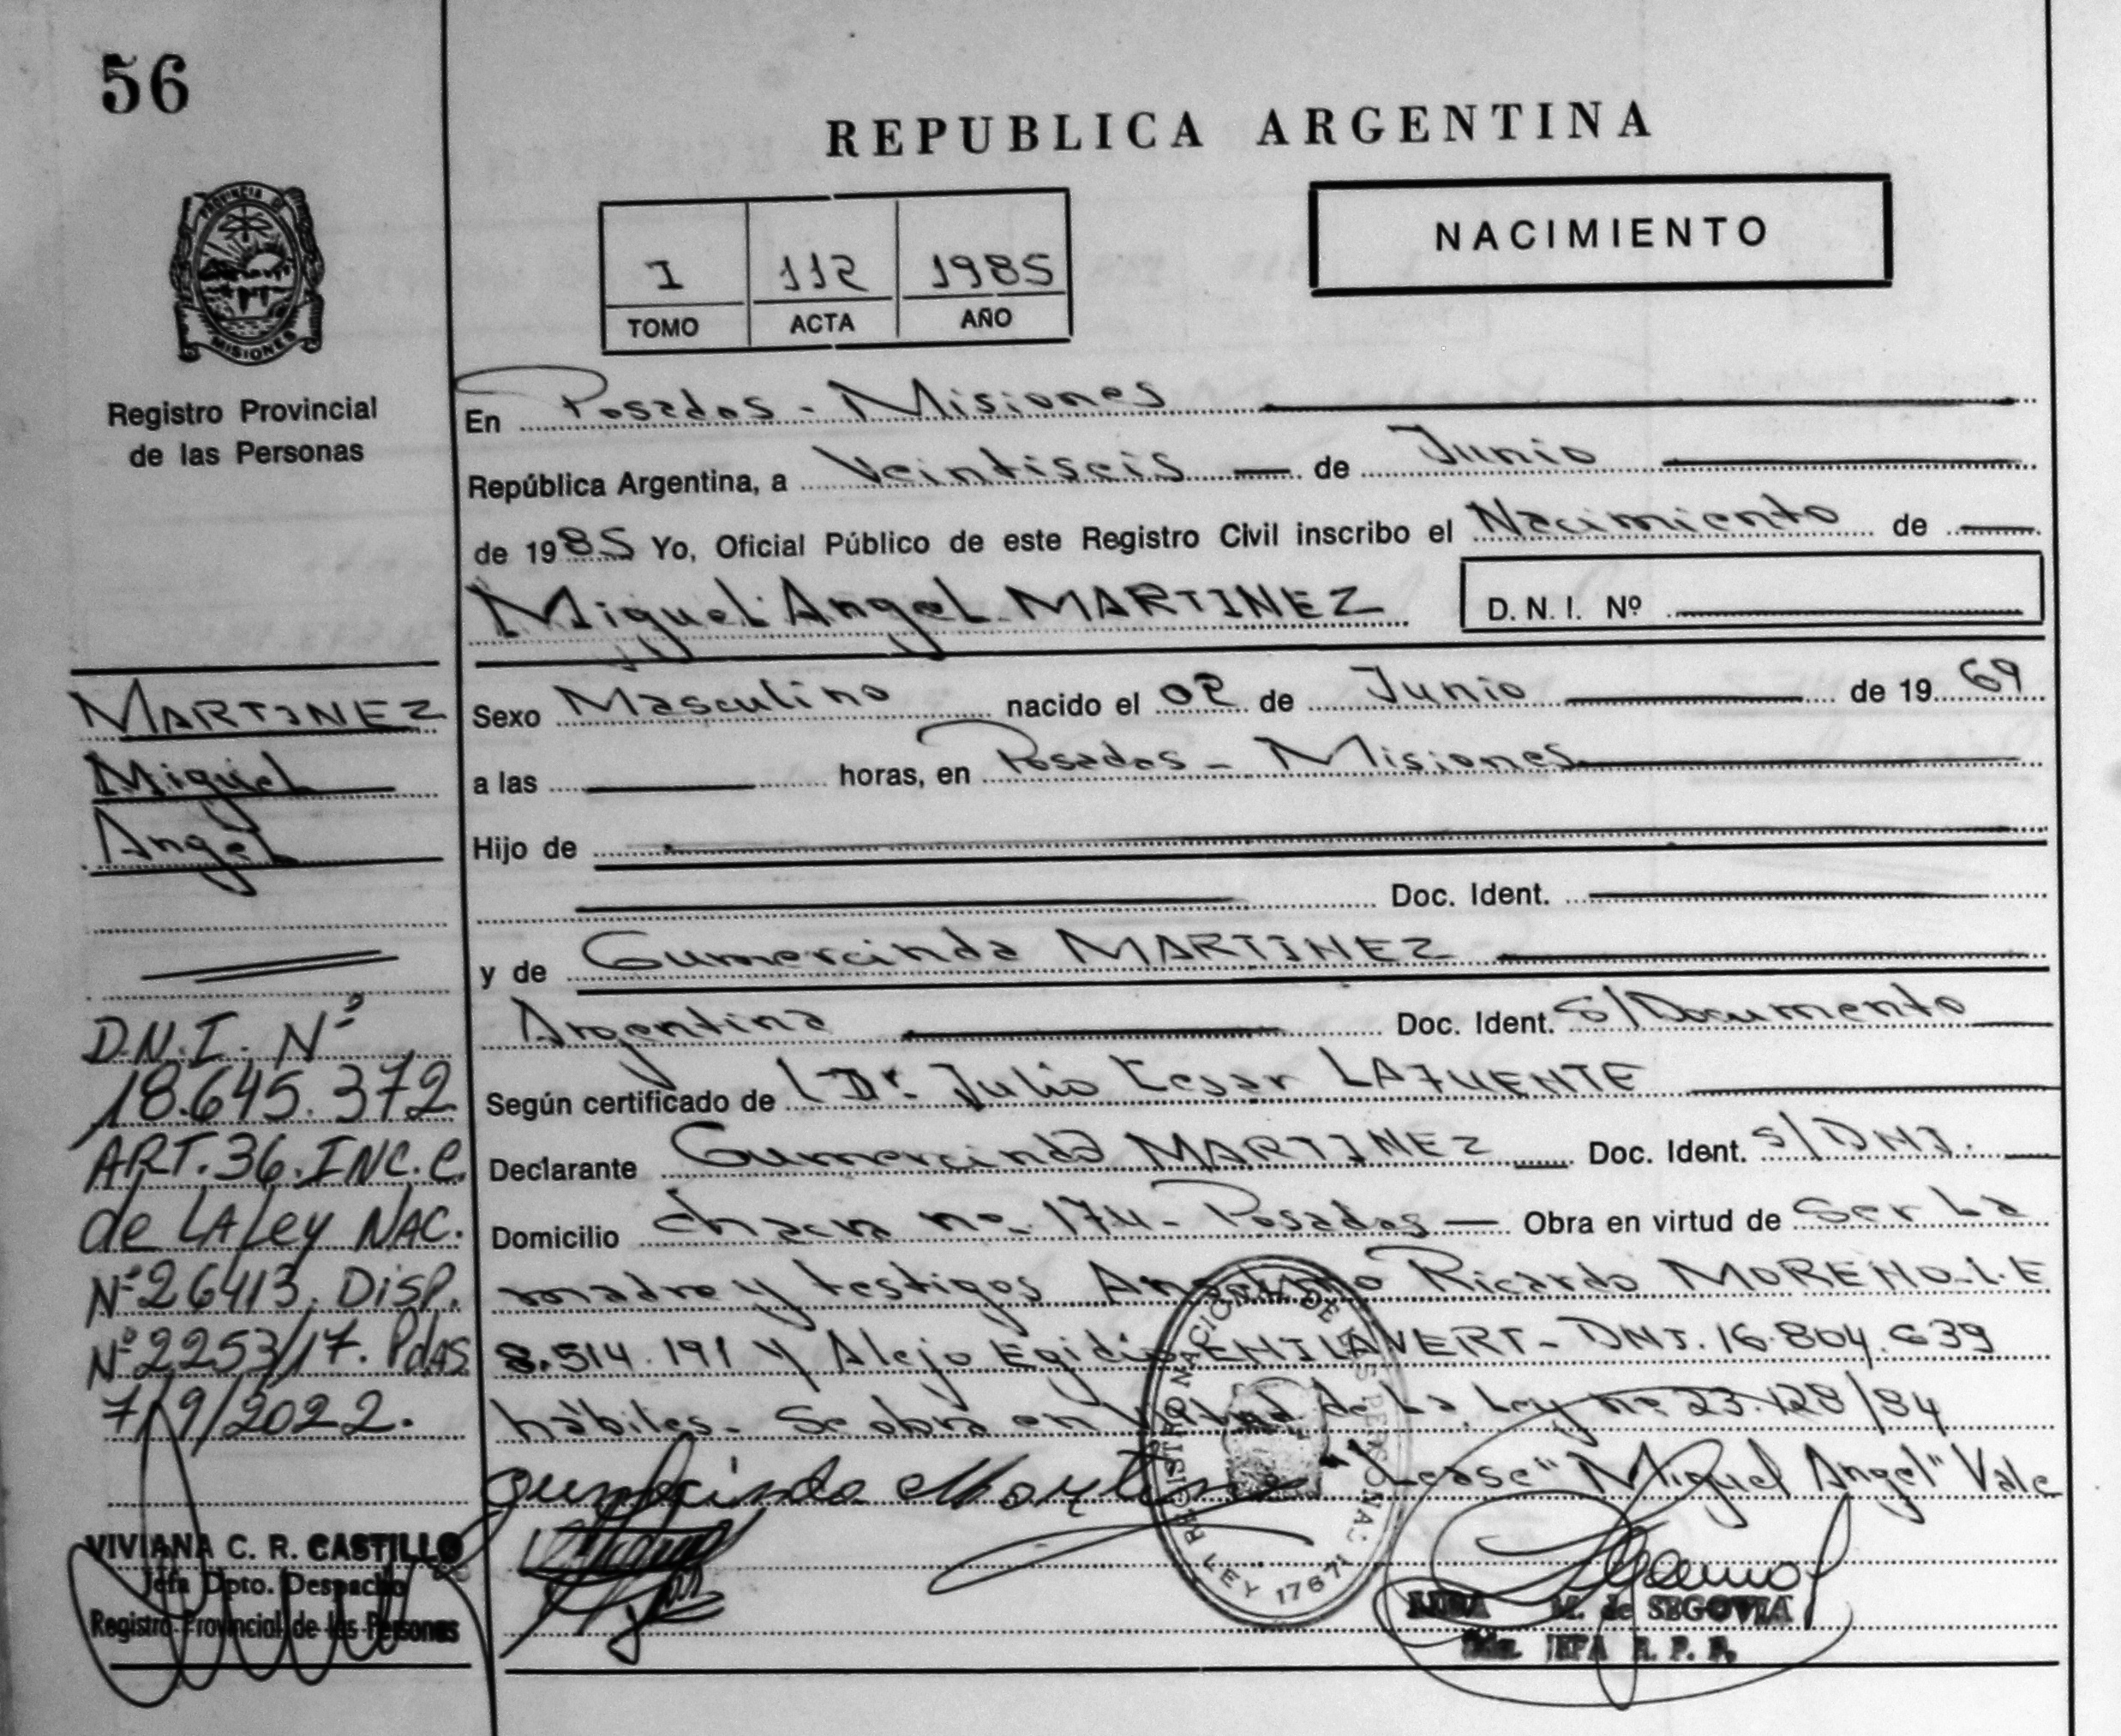 56
REPUBLICA ARGENTINA
PROVINCIA DE
MISIONES
NACIMIENTO
I 112 1985
TOMO ACTA AÑO
Registro Provincial
de las Personas
En Posadas - Misiones
República Argentina, a Veintiseis de Junio
de 1985 Yo, Oficial Público de este Registro Civil inscribo el Nacimiento de
Miguel Angel MARTINEZ D.N.I. Nº
MARTINEZ
Miguel
Angel
Sexo Masculino nacido el 02 de Junio de 1969
a las horas, en Posadas - Misiones
Hijo de
Doc. Ident.
y de Gumercinda MARTINEZ
Argentina Doc. Ident. S/Documento
Según certificado de Dr. Julio Cesar LAFUENTE
Declarante Gumercinda MARTINEZ Doc. Ident. S/DNI.
Domicilio chacra nº 174 - Posadas Obra en virtud de Ser La
madre y testigos Ricardo MORENO-L.E
8.514.191 y Alejo Egidio - DNI. 16.804.639
hábiles - Se obra en virtud de La Ley nº 23.128/84
gumercinda Martinez Lease "Miguel Angel" Vale
D.N.I. Nº
18.645.372
ART. 36. INC. C.
de LA Ley NAC.
Nº 26413. DISP.
Nº 2253/17. Pdas.
7/9/2022.
VIVIANA C. R. CASTILLO
Jefa Dpto. Despacho
Registro Provincial de las Personas
REGISTRO NACIONAL DE LAS PERSONAS
LEY 17671
M. de SEGOVIA
JEFA R. P. P.